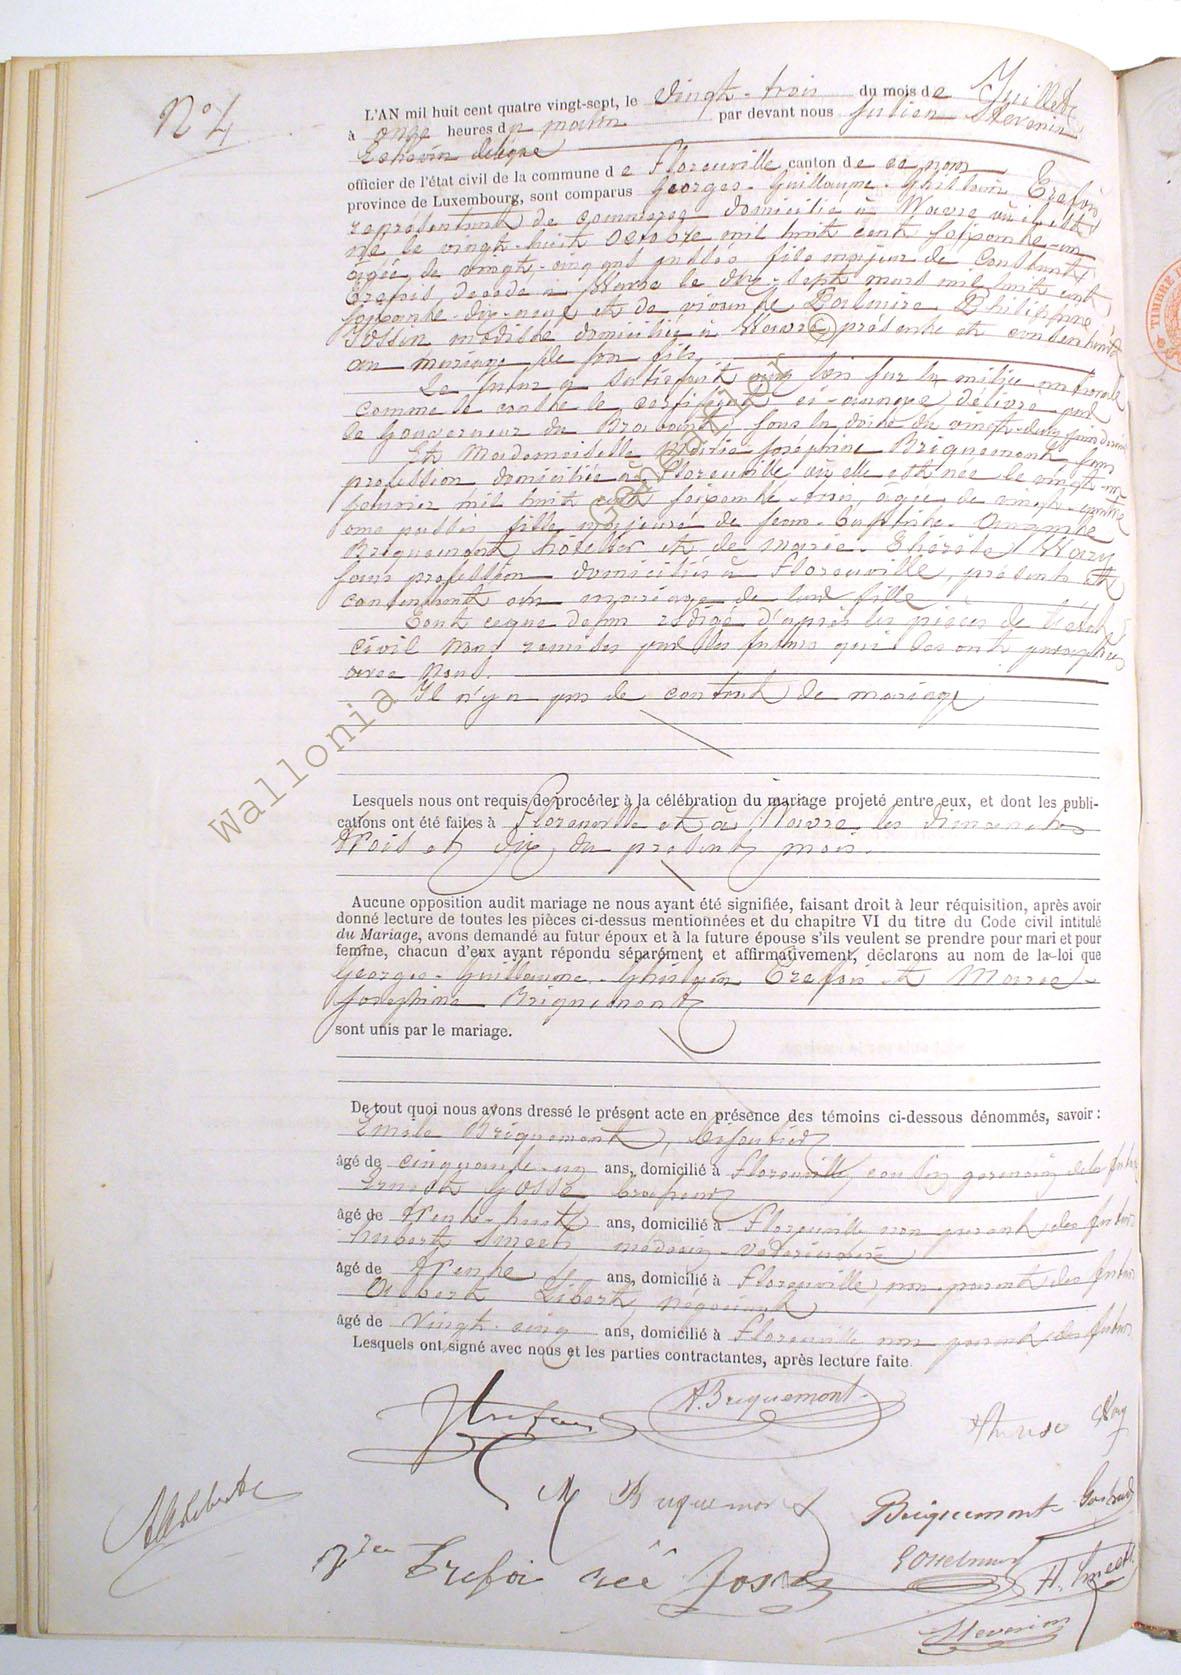 N° 4
L'AN mil huit cent quatre vingt-sept, le vingt-trois du mois de Juillet
à onze heures du matin par devant nous Julien Stevenin
Echevin délégué
officier de l'état civil de la commune de Florenville, canton de ce nom
province de Luxembourg, sont comparus Georges-Guillaume-Ghislain Trefois
représentant de commerce, domicilié à Wavre où il est
né le vingt-huit Octobre mil huit cent soixante-un
âgée de vingt-cinq ans passés fils majeur de Constant
Trefois, décédé à Wavre le dix-sept mars mil huit cent
soixante-dix-neuf et de vivante Philippine
Jossin modiste domiciliée à Wavre présente et consentante
au mariage de son fils
Le futur a satisfait aux lois sur la milice nationale
comme le conste le certificat ci-annexé, délivré par
le Gouverneur du Brabant, sous la date du vingt-deux juin dernier
Et Mademoiselle Marie-Joséphine Briquemont sans
profession, domiciliée à Florenville où elle est née le vingt-
février mil huit cent soixante-trois, âgée de vingt-quatre
ans passés fille majeure de Jean-Baptiste-Amand
Briquemont hôtelier et de Marie-Thérèse Wary
sans profession domiciliés à Florenville, présents et
consentants au mariage de leur fille
Tout ce que dessus rédigé d'après les pièces de l'état
civil nous remises par les futurs qui les ont paraphées
avec nous.
Il n'y a pas de contrat de mariage
Lesquels nous ont requis de procéder à la célébration du mariage projeté entre eux, et dont les publi-
cations ont été faites à Florenville et à Wavre les dimanches
trois et dix du présent mois.
Aucune opposition audit mariage ne nous ayant été signifiée, faisant droit à leur réquisition, après avoir
donné lecture de toutes les pièces ci-dessus mentionnées et du chapitre VI du titre du Code civil intitulé
du Mariage, avons demandé au futur époux et à la future épouse s'ils veulent se prendre pour mari et pour
femme, chacun d'eux ayant répondu séparément et affirmativement, déclarons au nom de la loi que
Georges-Guillaume-Ghislain Trefois et Marie-
Joséphine Briquemont
sont unis par le mariage.
De tout quoi nous avons dressé le présent acte en présence des témoins ci-dessous dénommés, savoir :
Emile Briquemont, bijoutier
âgé de cinquante-un ans, domicilié à Florenville, cousin germain de la future
Ernest Gosse
âgé de trente-huit ans, domicilié à Florenville non parent des futurs
Hubert Smeets médecin-vétérinaire
âgé de trente ans, domicilié à Florenville, non parent des futurs
Albert Libert, négociant
âgé de vingt-cinq ans, domicilié à Florenville non parent des futurs
Lesquels ont signé avec nous et les parties contractantes, après lecture faite.
Trefois A. Briquemont Thérèse Wary
M Briquemont Briquemont
Alb Libert
Vve Trefois née Jossin H. Smeets
Stevenin
Wallonia Genealogy
TIMBRE